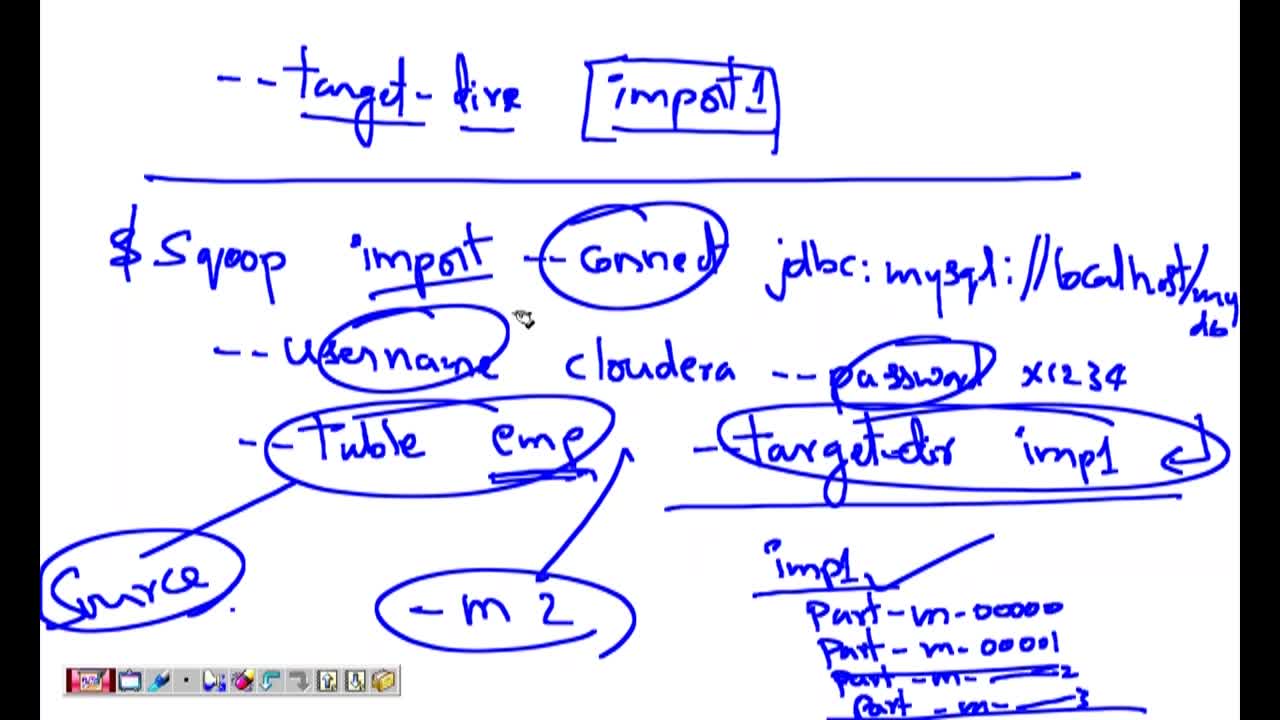 --target-dire import1
$ Sqoop import -- connect jdbc:mysql://localhost/my
db
-- username cloudera -- password x1234
-- Table emp -- target-dir imp1
Source
- m 2
imp1
part-m-00000
part-m-00001
part-m- 2
part-m- 3